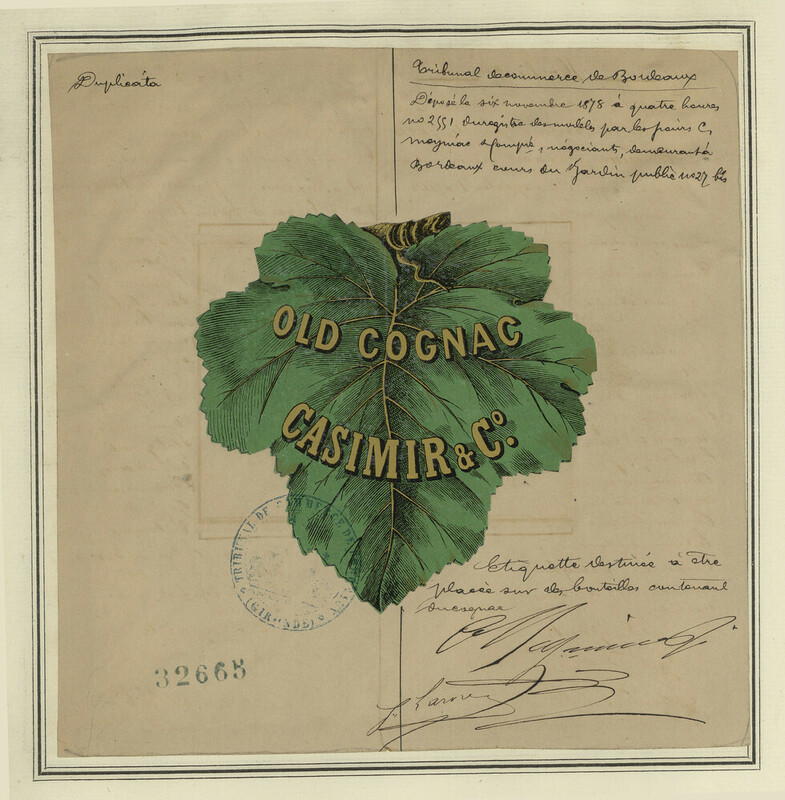 Duplicata
Tribunal de commerce de Bordeaux
Déposé le six novembre 1878 à quatre heures
no 2551 du registre des modèles par les sieurs C.
Meyniac & Compie, négociants, demeurant à
Bordeaux cours du Jardin public no 27 bis
OLD COGNAC
CASIMIR & Co.
TRIBUNAL DE COMMERCE DE
(GIRONDE)
Etiquette destinée à être
placée sur des bouteilles contenant
du cognac
32665